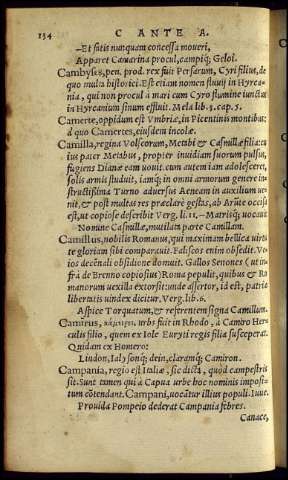 134 C ANTE A.
—Et fatis nunquam concessa moveri,
Apparet Camarina procul, campiq; Geloi.
Cambyses, pen. prod. rex fuit Persarum, Cyri filius, de
quo multa historici. Est etiam nomen fluuij in Hyrca-
nia, qui non procul à mari cum Cyro flumine iunctus
in Hyrcanium sinum effluit. Mela lib. 3. cap. 5.
Camerte, oppidum est Vmbriæ, in Picentinis montibus:
à quo Camertes, eiusdem incolæ.
Camilla, regina Volscorum, Metabi & Casmillæ filia: cu
ius pater Metabus, propter inuidiam suorum pulsus,
fugiens Dianæ eam vouit. cum autem iam adolesceret,
solis armis studuit, iamq; in omni armorum genere in-
structissima Turno aduersus Aeneam in auxilium ve-
nit, & post multas res præclarè gestas, ab Arūte occisa
est, ut copiose describit Verg. li. 11. —Matrisq; uocauit
Nomine Casmillæ, mutilata parte Camillam.
Camillus, nobilis Romanus, qui maximam bellica virtu
te gloriam sibi comparauit. Faliscos enim obsedit. Ve
ios decēnali obsidione domuit. Gallos Senones (ut in-
frà de Brenno copiosius) Roma pepulit, quibus & Ro
manorum uexilla extorsit: unde assertor, id est, patriæ
libertatis uindex dicitur. Verg. lib. 6.
Aspice Torquatum, & referentem signa Camillum.
Camirus, κάμειρος, urbs fuit in Rhodo, à Camiro Her-
culis filio, quem ex Iole Euryti regis filia susceperat.
Quidam ex Homero:
Lindon, Ialysonq; dein, claramq; Camiron.
Campania, regio est Italiæ, sic dicta, quòd campestris
sit. Sunt tamen qui à Capua urbe hoc nominis imposi-
tum cōtendant. Campani, uocātur illius populi. Iuue.
Prouida Pompeio dederat Campania febres.
Canace,